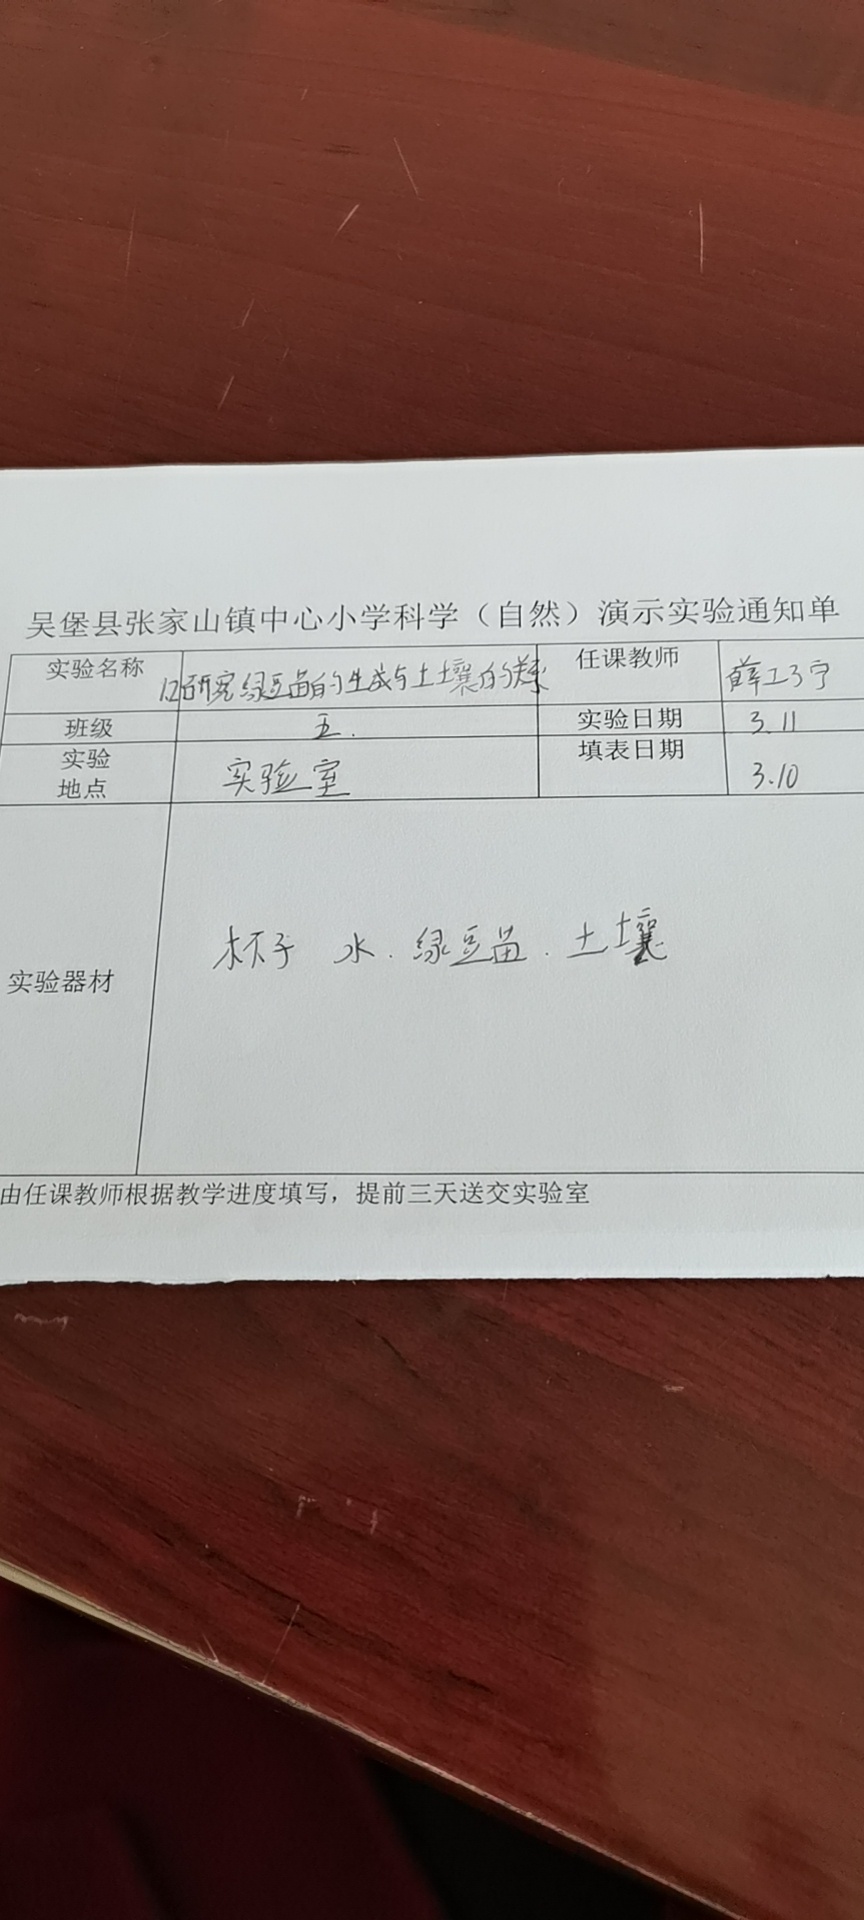 吴堡县张家山镇中心小学科学（自然）演示实验通知单
实验名称 研究绿豆苗的生长与土壤的关系 任课教师 薛
班级 五. 实验日期 3.11
实验地点 实验室 填表日期 3.10
实验器材 杯子 水.绿豆苗.土壤
由任课教师根据教学进度填写，提前三天送交实验室